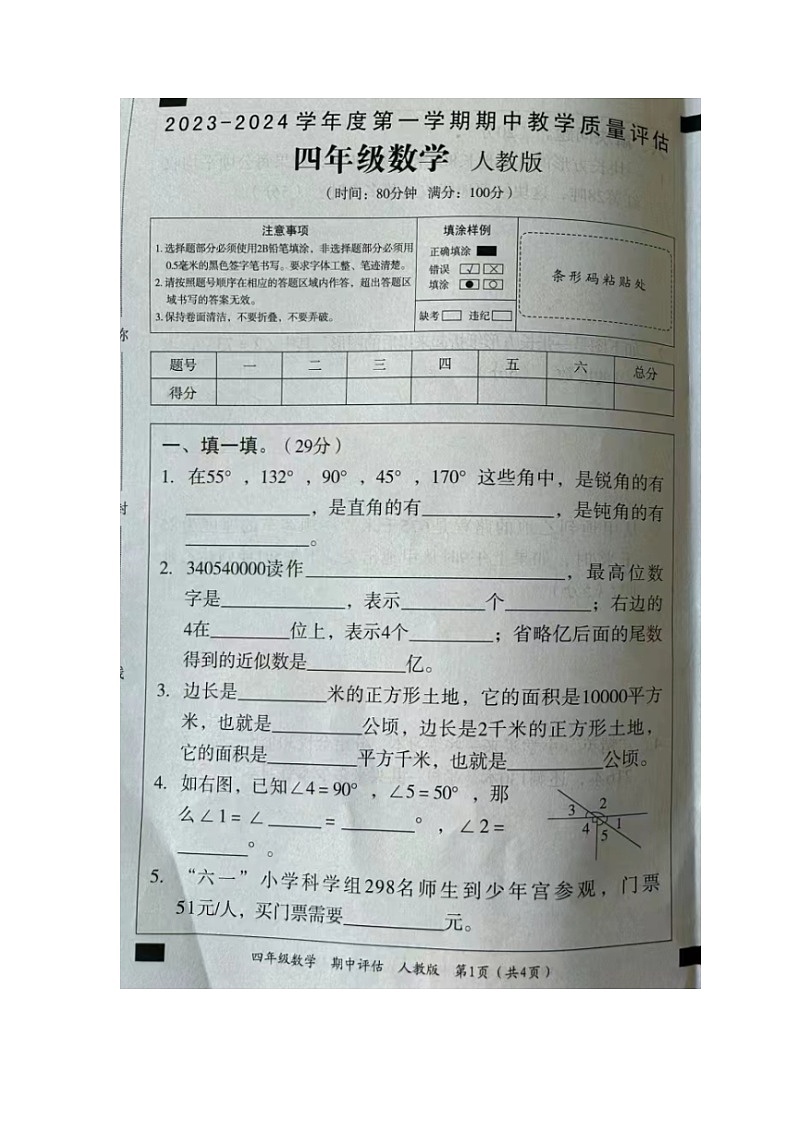 2023-2024学年度第一学期期中教学质量评估
四年级数学 人教版
（时间：80分钟 满分：100分）
注意事项
1.选择题部分必须使用2B铅笔填涂，非选择题部分必须用
0.5毫米的黑色签字笔书写。要求字体工整、笔迹清楚。
2.请按照题号顺序在相应的答题区域内作答，超出答题区
域书写的答案无效。
3.保持卷面清洁，不要折叠，不要弄破。
填涂样例
正确填涂
错误
填涂
缺考 违纪
条形码粘贴处
题号 一 二 三 四 五 六 总分
得分
一、填一填。（29分）
1. 在55°，132°，90°，45°，170°这些角中，是锐角的有
____________，是直角的有____________，是钝角的有
____________。
2. 340540000读作________________________，最高位数
字是____________，表示________个________；右边的
4在________位上，表示4个________；省略亿后面的尾数
得到的近似数是_________亿。
3. 边长是________米的正方形土地，它的面积是10000平方
米，也就是________公顷，边长是2千米的正方形土地，
它的面积是________平方千米，也就是________公顷。
4. 如右图，已知∠4=90°，∠5=50°，那
么∠1=∠_____=_______°，∠2=
_______°。
3 2
4 5 1
5. “六一”小学科学组298名师生到少年宫参观，门票
51元/人，买门票需要_________元。
四年级数学 期中评估 人教版 第1页（共4页）